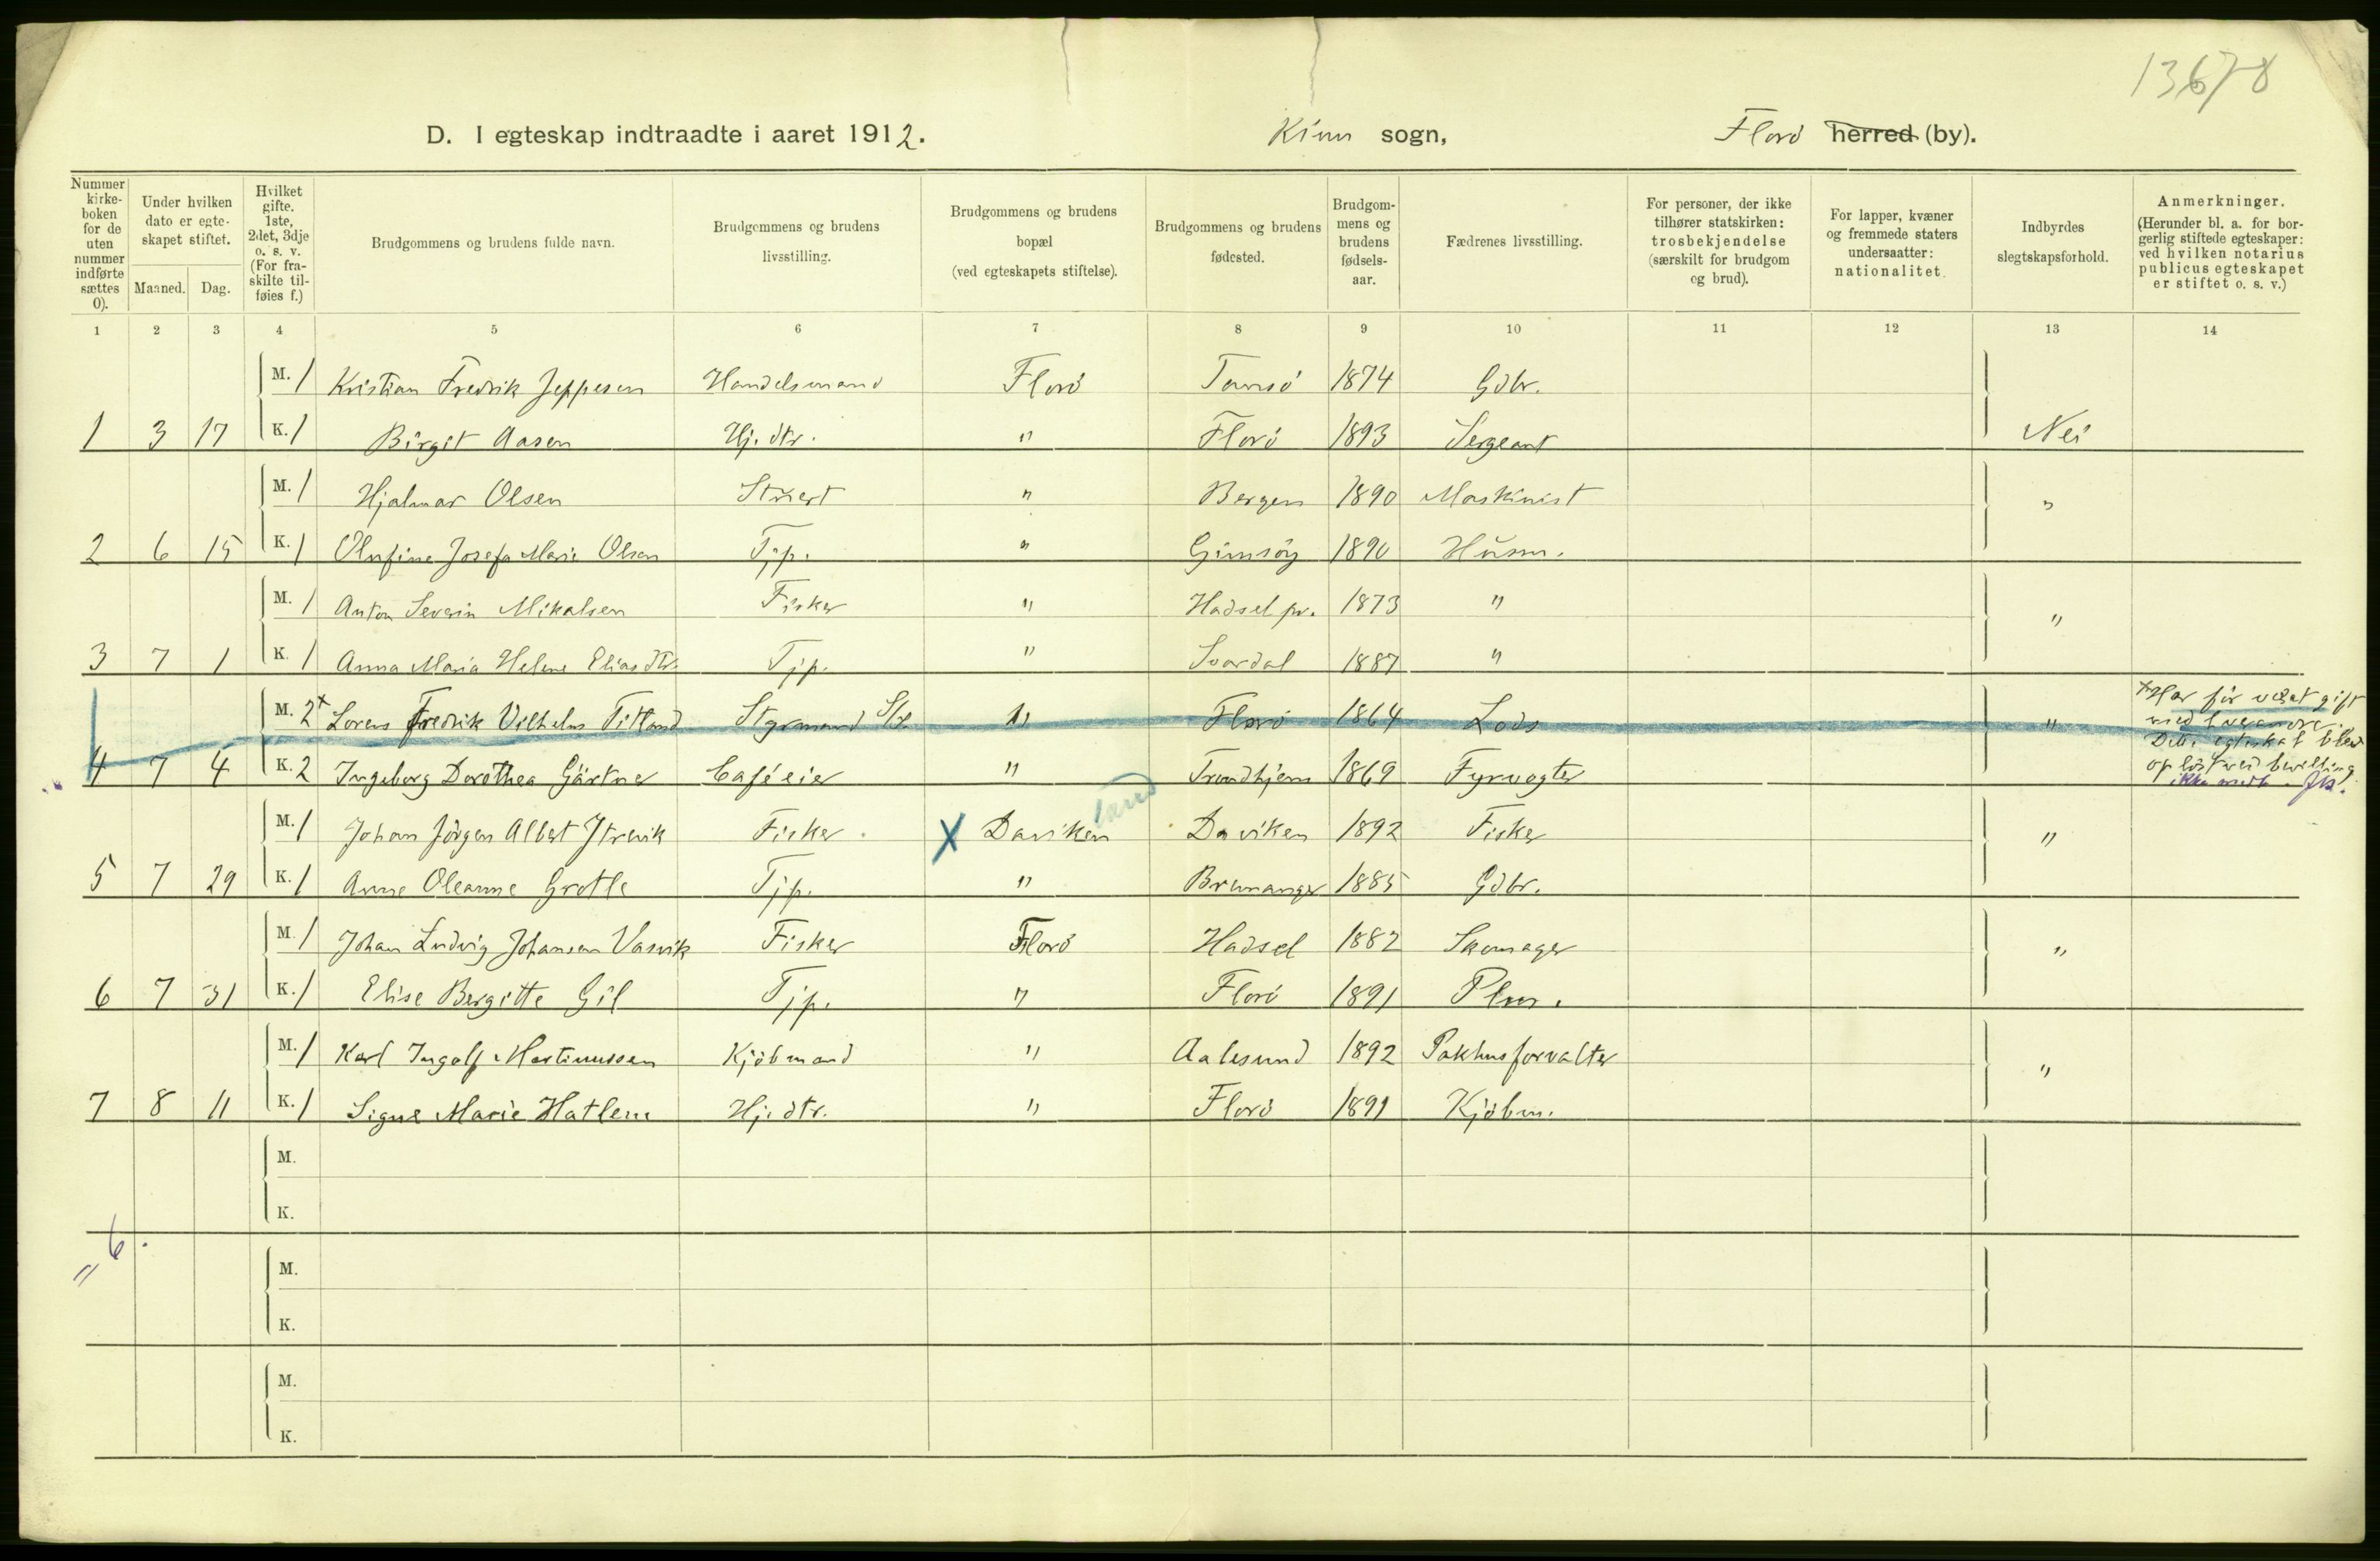 13678
D. I egteskap indtraadte i aaret 1912. Kinn sogn, Florö herred (by).
Nummer kirkeboken for de uten nummer indførte sættes 0).
Under hvilken dato er egteskapet stiftet.
Maaned. Dag.
Hvilket gifte. 1ste, 2det, 3dje o. s. v. (For fraskilte tilføies f.)
Brudgommens og brudens fulde navn.
Brudgommens og brudens livsstilling.
Brudgommens og brudens bopæl (ved egteskapets stiftelse).
Brudgommens og brudens fødested.
Brudgommens og brudens fødselsaar.
Fædrenes livsstilling.
For personer, der ikke tilhører statskirken: trosbekjendelse (særskilt for brudgom og brud).
For lapper, kvæner og fremmede staters undersaatter: nationalitet.
Indbyrdes slegtskapsforhold.
Anmerkninger. (Herunder bl. a. for borgerlig stiftede egteskaper: ved hvilken notarius publicus egteskapet er stiftet o. s. v.)
1 2 3 4 5 6 7 8 9 10 11 12 13 14
M. 1 Kristian Fredrik Jeppesen Handelsmand Florö 1874 Gdbr.
1 3 17 K. 1 Birgit Aasen Hj. dtr. " Florö 1893 Sergeant Nei
M. 1 Hjalmar Olsen Stuert " Bergen 1890 Maskinist "
2 6 15 K. 1 Olufine Josefa Marie Olsen Tjp. " Gimsöy 1890 Husm.
M. 1 Anton Severin Mikalsen Fisker " Hadsel pr. 1873 " "
3 7 1 K. 1 Anna Maria Helene Eliasdtr. Tjp. " 1887 "
M. 2 x Lorens Fredrik Vilhelm Titland Styrmand " Florö 1864 Lods "
x Har för været gift
med hverandre.
Dette egteskab blev
oplöst ved bevilling
4 7 4 K. 2 Ingeborg Dorothea Gärtner Caféeier " Trondhjem 1869 Fyrvogter
ikke
land
M. 1 Johan Jörgen Albert Fisker X Daviken Daviken 1892 Fisker "
5 7 29 K. 1 Anne Oleanne Grotle Tjp. " Bremanger 1885 Gdbr.
M. 1 Johan Ludvig Johansen Vasvik Fisker Florö Hadsel 1882 Skomager "
6 7 31 K. 1 Elise Bergitte Gil Tjp. " Florö 1891
M. 1 Karl Ingolf Martinussen Kjöbmand " Aalesund 1892 Pakhusforvalter "
7 8 11 K. 1 Signe Marie Hatlem Hj. dtr. " Florö 1891 Kjöbm.
M.
K.
6.
M.
K.
M.
K.